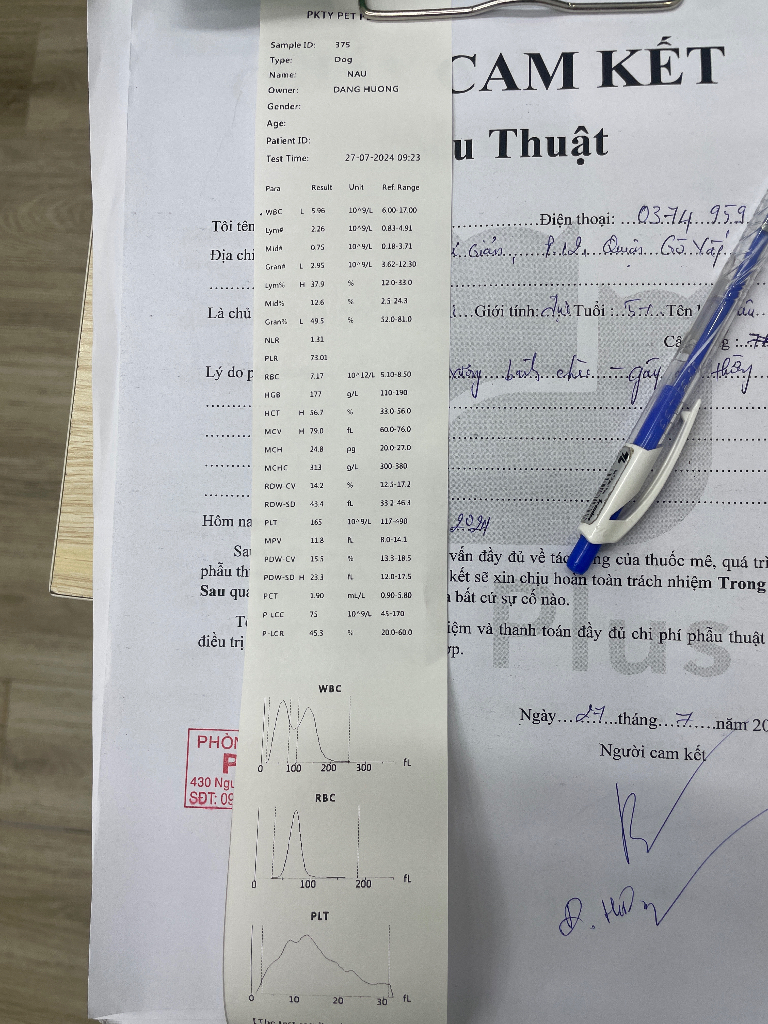 PKTY PET
Sample ID: 375
Type: Dog
Name: NAU
Owner: DANG HUONG
Gender:
Age:
Patient ID:
Test Time: 27-07-2024 09:23
Para Result Unit Ref. Range
WBC L 5.96 10^9/L 6.00-17.00
Lym# 2.26 10^9/L 0.83-4.91
Mid# 0.75 10^9/L 0.18-3.71
Gran# L 2.95 10^9/L 3.62-12.30
Lym% H 37.9 % 12.0-33.0
Mid% 12.6 % 2.5-24.3
Gran% L 49.5 % 52.0-81.0
NLR 1.31
PLR 73.01
RBC 7.17 10^12/L 5.10-8.50
HGB 177 g/L 110-190
HCT H 56.7 % 33.0-56.0
MCV H 79.0 fL 60.0-76.0
MCH 24.8 pg 20.0-27.0
MCHC 313 g/L 300-380
RDW-CV 14.2 % 12.5-17.2
RDW-SD 43.4 fL 33.2-46.3
PLT 165 10^9/L 117-490
MPV 11.8 fL 8.0-14.1
PDW-CV 15.5 % 13.3-18.5
PDW-SD H 23.3 fL 12.0-17.5
PCT 1.90 mL/L 0.90-5.80
P-LCC 75 10^9/L 45-170
P-LCR 45.3 % 20.0-60.0
WBC
0 100 200 300 fL
RBC
0 100 200 fL
PLT
0 10 20 30 fL
CAM KẾT
u Thuật
Tôi tên Điện thoại: 0374 959
Địa chỉ Giản, P.12, Quận Gò Vấp
Là chủ Giới tính: Tuổi: 5 Tên
Lý do p
Hôm na 2024
Sa vấn đầy đủ về tác của thuốc mê, quá trì
phẫu th kết sẽ xin chịu hoàn toàn trách nhiệm Trong
Sau quá bất cứ sự cố nào.
T iệm và thanh toán đầy đủ chi phí phẫu thuật
điều trị p.
Plus
Ngày 27 tháng 7 năm 20
Người cam kết
PHÒN
P
430 Ngu
SĐT: 09